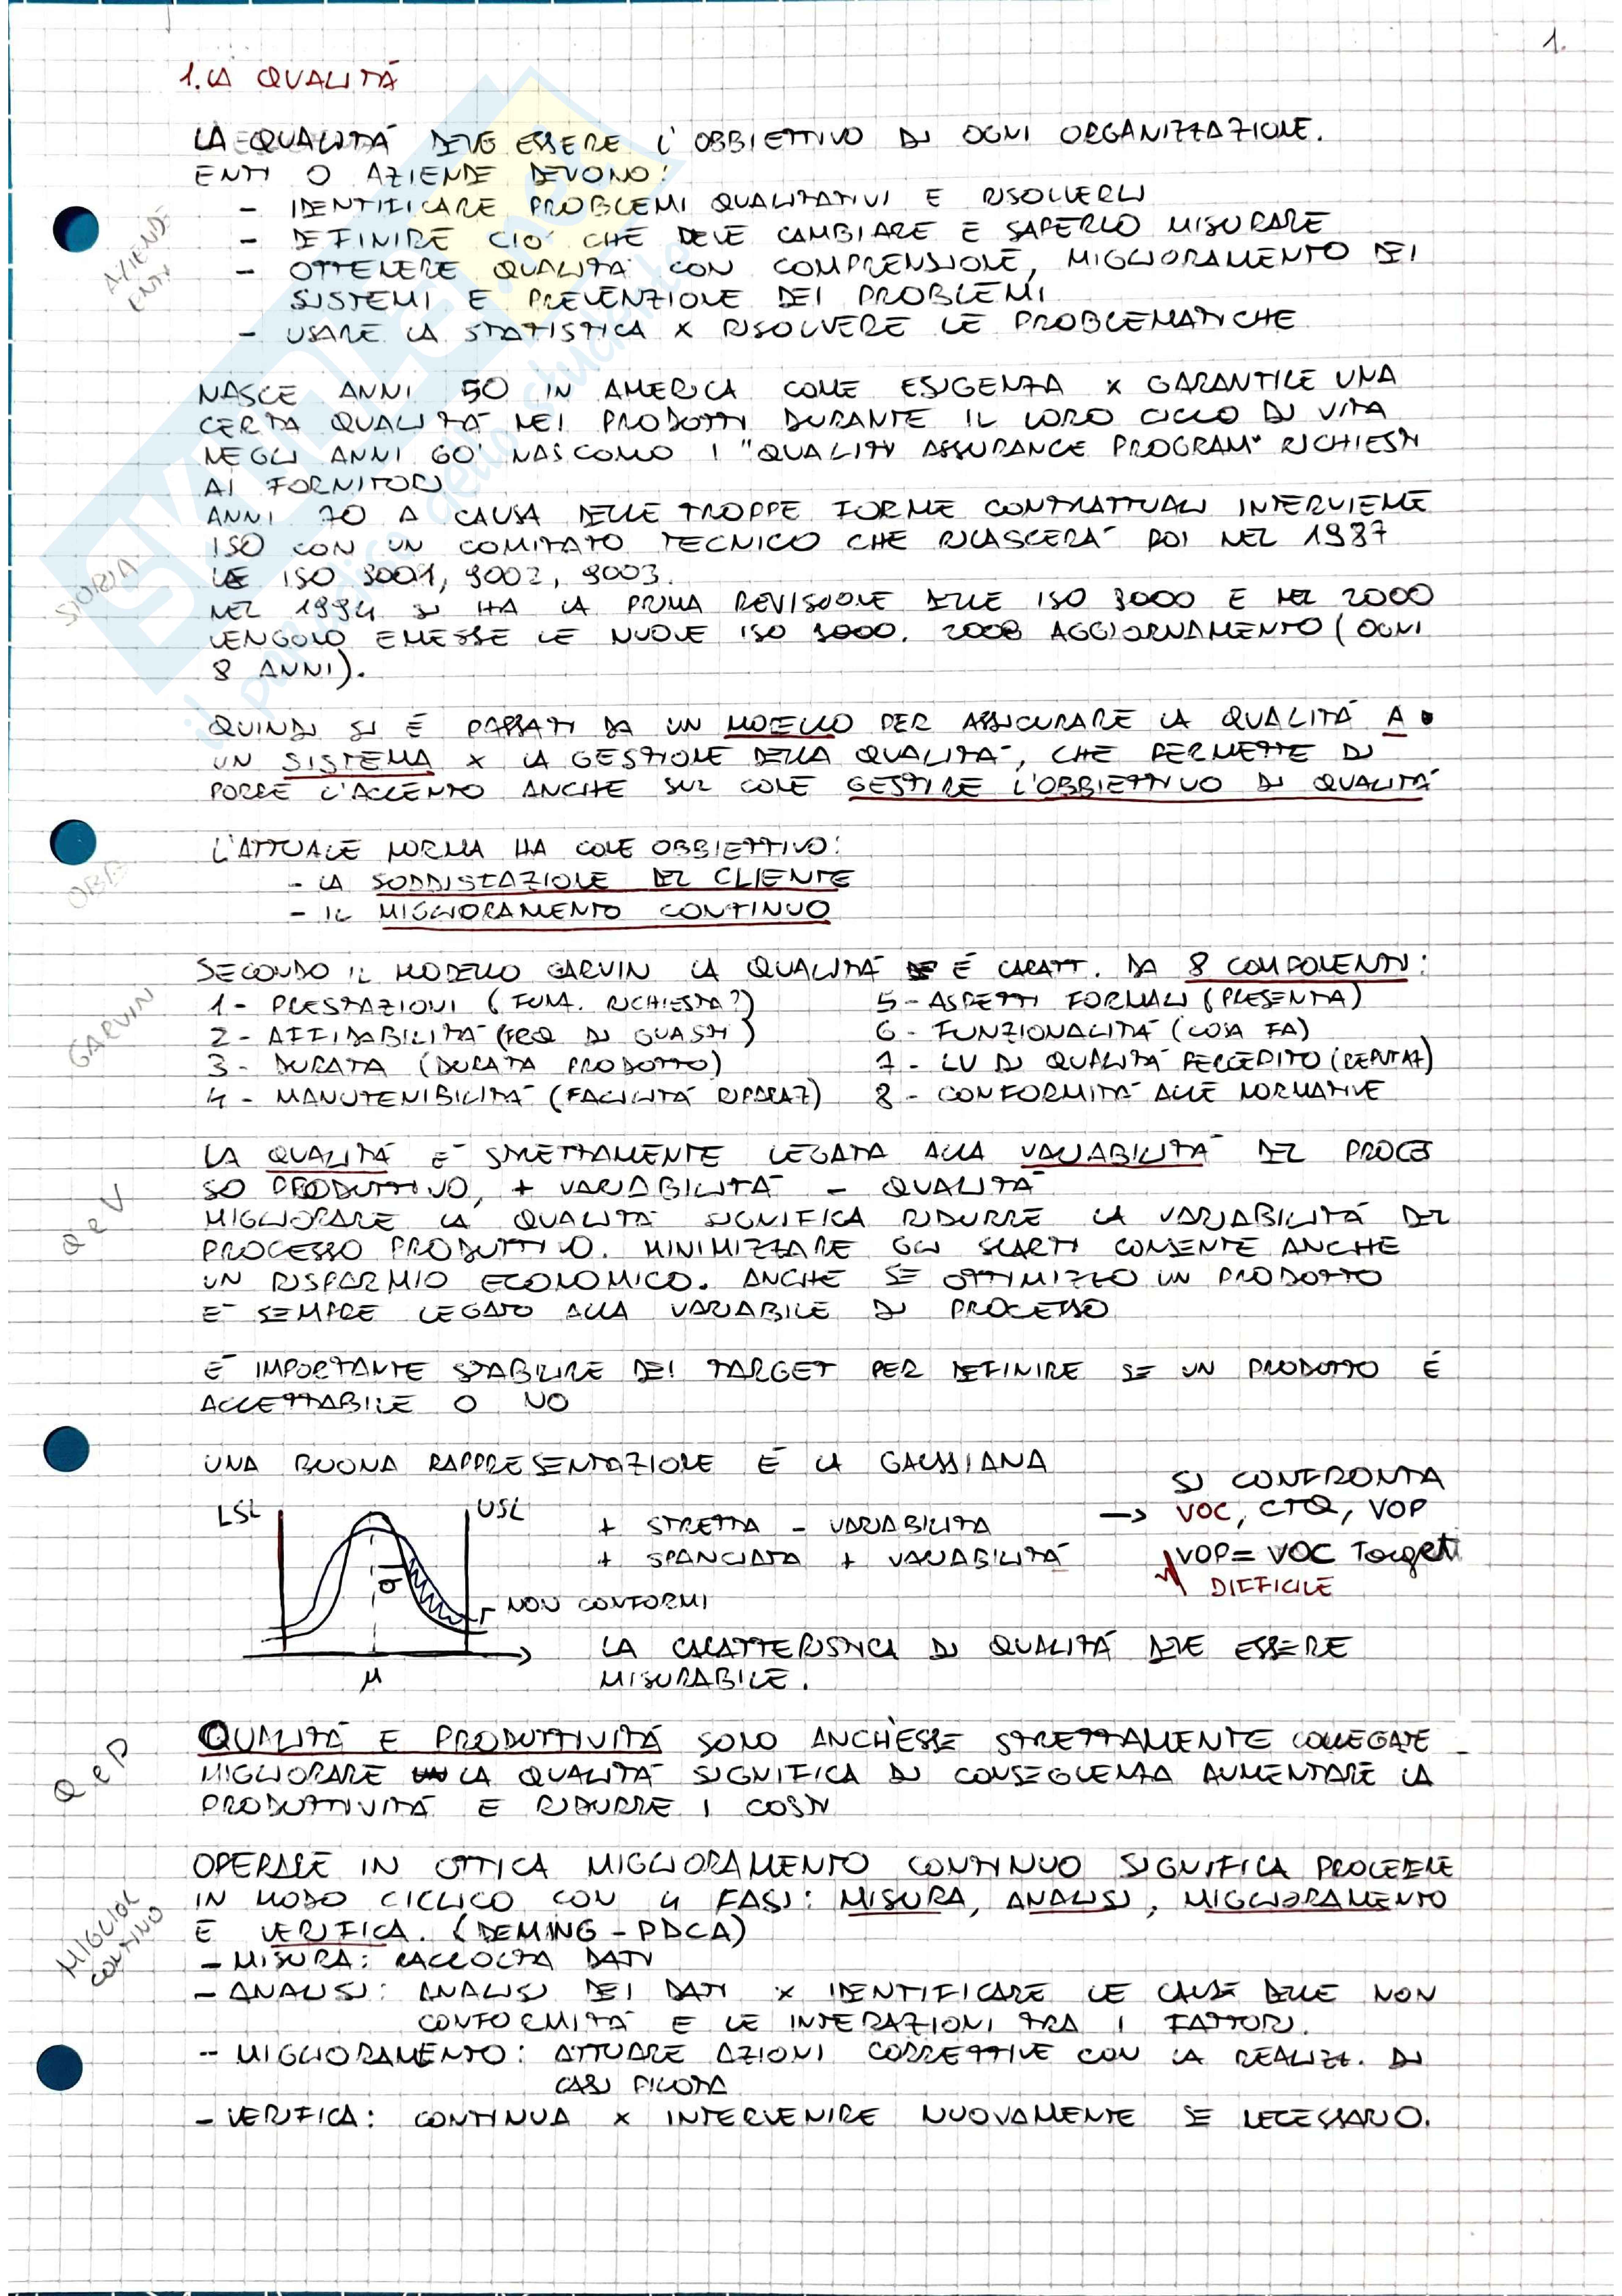 1.
1. LA QUALITÁ
LA QUALITÁ DEVE ESSERE L'OBBIETTIVO DI OGNI ORGANIZZAZIONE.
ENTI O AZIENDE DEVONO:
- IDENTIFICARE PROBLEMI QUALITATIVI E RISOLVERLI
- DEFINIRE CIO' CHE DEVE CAMBIARE E SAPERLO MISURARE
- OTTENERE QUALITÁ CON COMPRENSIONE, MIGLIORAMENTO DEI
SISTEMI E PREVENZIONE DEI PROBLEMI
- USARE LA STATISTICA X RISOLVERE LE PROBLEMATICHE
AZIENDE
ENTI
NASCE ANNI 50 IN AMERICA COME ESIGENZA X GARANTIRE UNA
CERTA QUALITÁ NEI PRODOTTI DURANTE IL LORO CICLO DI VITA
NEGLI ANNI 60' NASCONO I "QUALITY ASSURANCE PROGRAM" RICHIESTI
AI FORNITORI
ANNI 70 A CAUSA DELLE TROPPE FORME CONTRATTUALI INTERVIENE
ISO CON UN COMITATO TECNICO CHE RILASCERÁ POI NEL 1987
LE ISO 9001, 9002, 9003.
NEL 1994 SI HA LA PRIMA REVISIONE DELLE ISO 9000 E NEL 2000
VENGONO EMESSE LE NUOVE ISO 9000. 2008 AGGIORNAMENTO (OGNI
8 ANNI).
STORIA
QUINDI SI É PASSATI DA UN MODELLO PER ASSICURARE LA QUALITÁ A
UN SISTEMA X LA GESTIONE DELLA QUALITÁ, CHE PERMETTE DI
PORRE L'ACCENTO ANCHE SUL COME GESTIRE L'OBBIETTIVO DI QUALITÁ
L'ATTUALE NORMA HA COME OBBIETTIVO:
- LA SODDISFAZIONE DEL CLIENTE
- IL MIGLIORAMENTO CONTINUO
OBB
SECONDO IL MODELLO GARVIN LA QUALITÁ É CARATT. DA 8 COMPONENTI:
1 - PRESTAZIONI (FUNZ. RICHIESTA?) 5 - ASPETTI FORMALI (PRESENTA)
2 - AFFIDABILITÁ (FREQ DI GUASTI) 6 - FUNZIONALITÁ (COSA FA)
3 - DURATA (DURATA PRODOTTO) 7 - LV DI QUALITÁ PERCEPITO (REPUTAZ)
4 - MANUTENIBILITÁ (FACILITÁ RIPARAZ) 8 - CONFORMITÁ ALLE NORMATIVE
GARVIN
LA QUALITÁ É STRETTAMENTE LEGATA ALLA VARIABILITÁ DEL PROCES
SO PRODUTTIVO, + VARIABILITÁ - QUALITÁ
MIGLIORARE LA QUALITÁ SIGNIFICA RIDURRE LA VARIABILITÁ DEL
PROCESSO PRODUTTIVO. MINIMIZZARE GLI SCARTI CONSENTE ANCHE
UN RISPARMIO ECONOMICO. ANCHE SE OTTIMIZZO UN PRODOTTO
É SEMPRE LEGATO ALLA VARIABILE DI PROCESSO
Q e V
É IMPORTANTE STABILIRE DEI TARGET PER DEFINIRE SE UN PRODOTTO É
ACCETTABILE O NO
UNA BUONA RAPPRESENTAZIONE É LA GAUSSIANA
LSL USL
σ
μ
NON CONFORMI
+ STRETTA - VARIABILITÁ
+ SPANCIATA + VARIABILITÁ
SI CONFRONTA
-> VOC, CTQ, VOP
VOP = VOC Target
DIFFICILE
LA CARATTERISTICA DI QUALITÁ DEVE ESSERE
MISURABILE.
QUALITÁ E PRODUTTIVITÁ SONO ANCH'ESSE STRETTAMENTE COLLEGATE
MIGLIORARE LA QUALITÁ SIGNIFICA DI CONSEGUENZA AUMENTARE LA
PRODUTTIVITÁ E RIDURRE I COSTI
Q e P
OPERARE IN OTTICA MIGLIORAMENTO CONTINUO SIGNIFICA PROCEDERE
IN MODO CICLICO CON 4 FASI: MISURA, ANALISI, MIGLIORAMENTO
E VERIFICA. (DEMING - PDCA)
- MISURA: RACCOLTA DATI
- ANALISI: ANALISI DEI DATI X IDENTIFICARE LE CAUSE DELLE NON
CONFORMITÁ E LE INTERAZIONI TRA I FATTORI.
- MIGLIORAMENTO: ATTUARE AZIONI CORRETTIVE CON LA REALIZZ. DI
CASI PILOTA
- VERIFICA: CONTINUA X INTERVENIRE NUOVAMENTE SE NECESSARIO.
MIGLIOR
CONTINO